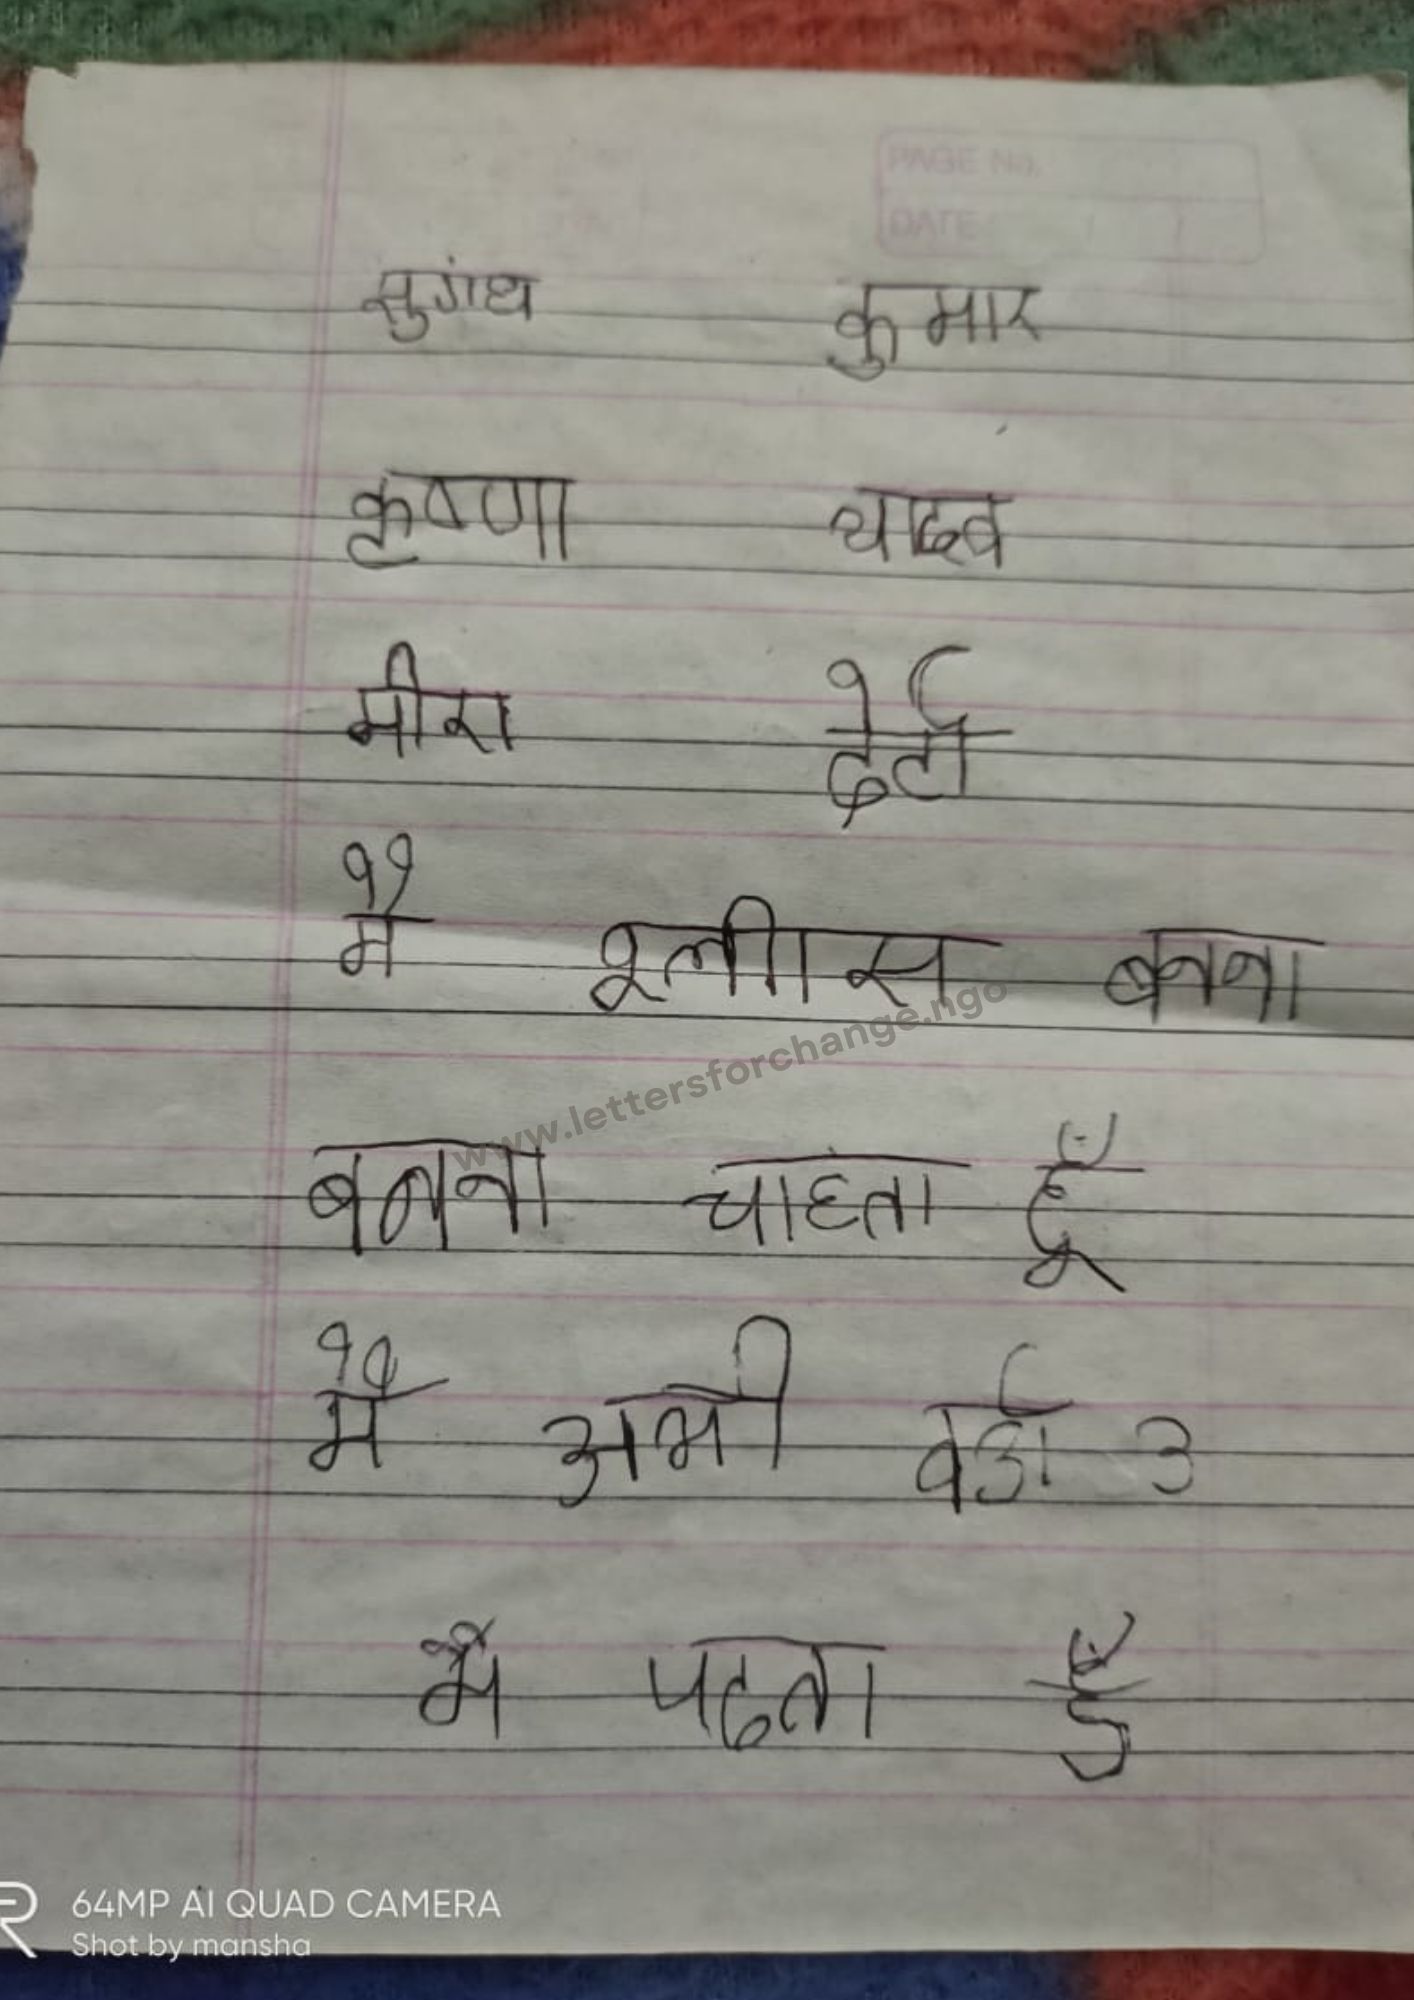 PAGE No.
DATE / /
सुगंध कुमार
कृष्णा यादव
मीरा देवी
में पूलीास बनना
www.lettersforchange.ngo
बनना चाहता हूँ
में अभी 3
में पढता हूँ
64MP AI QUAD CAMERA
Shot by mansha